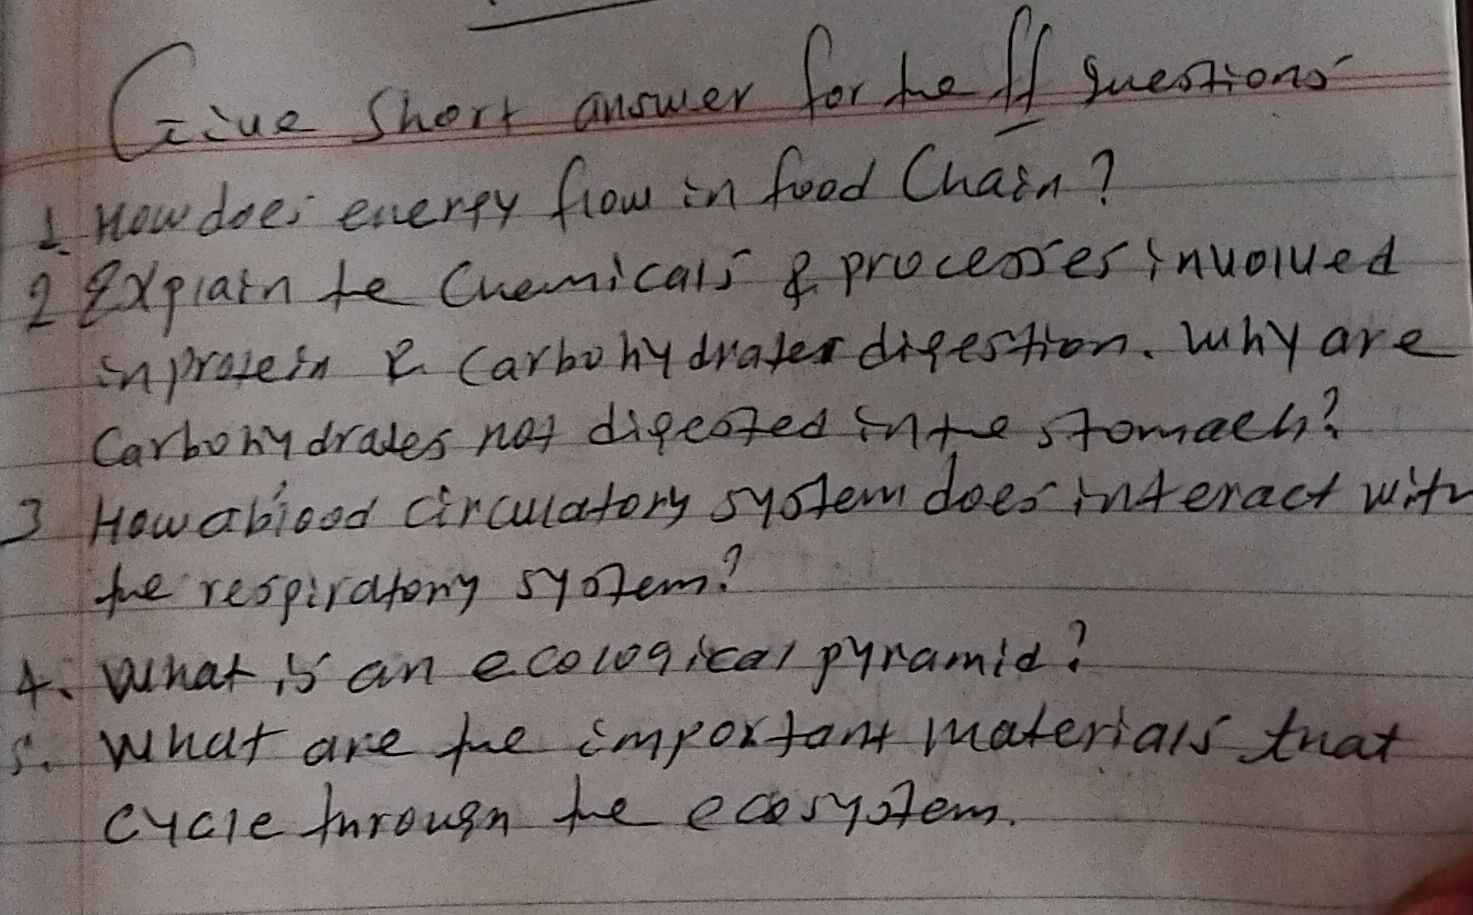 Give Short answer for the ff questions
1. How does energy flow in food Chain?
2 Explain the Chemicals & processes involved
in protein & Carbohydrates digestion. Why are
Carbohydrates not digested in the stomach?
3 How a blood circulatory system does interact with
the respiratory system?
4. What is an ecological pyramid?
5. What are the important materials that
cycle through the ecosystem.